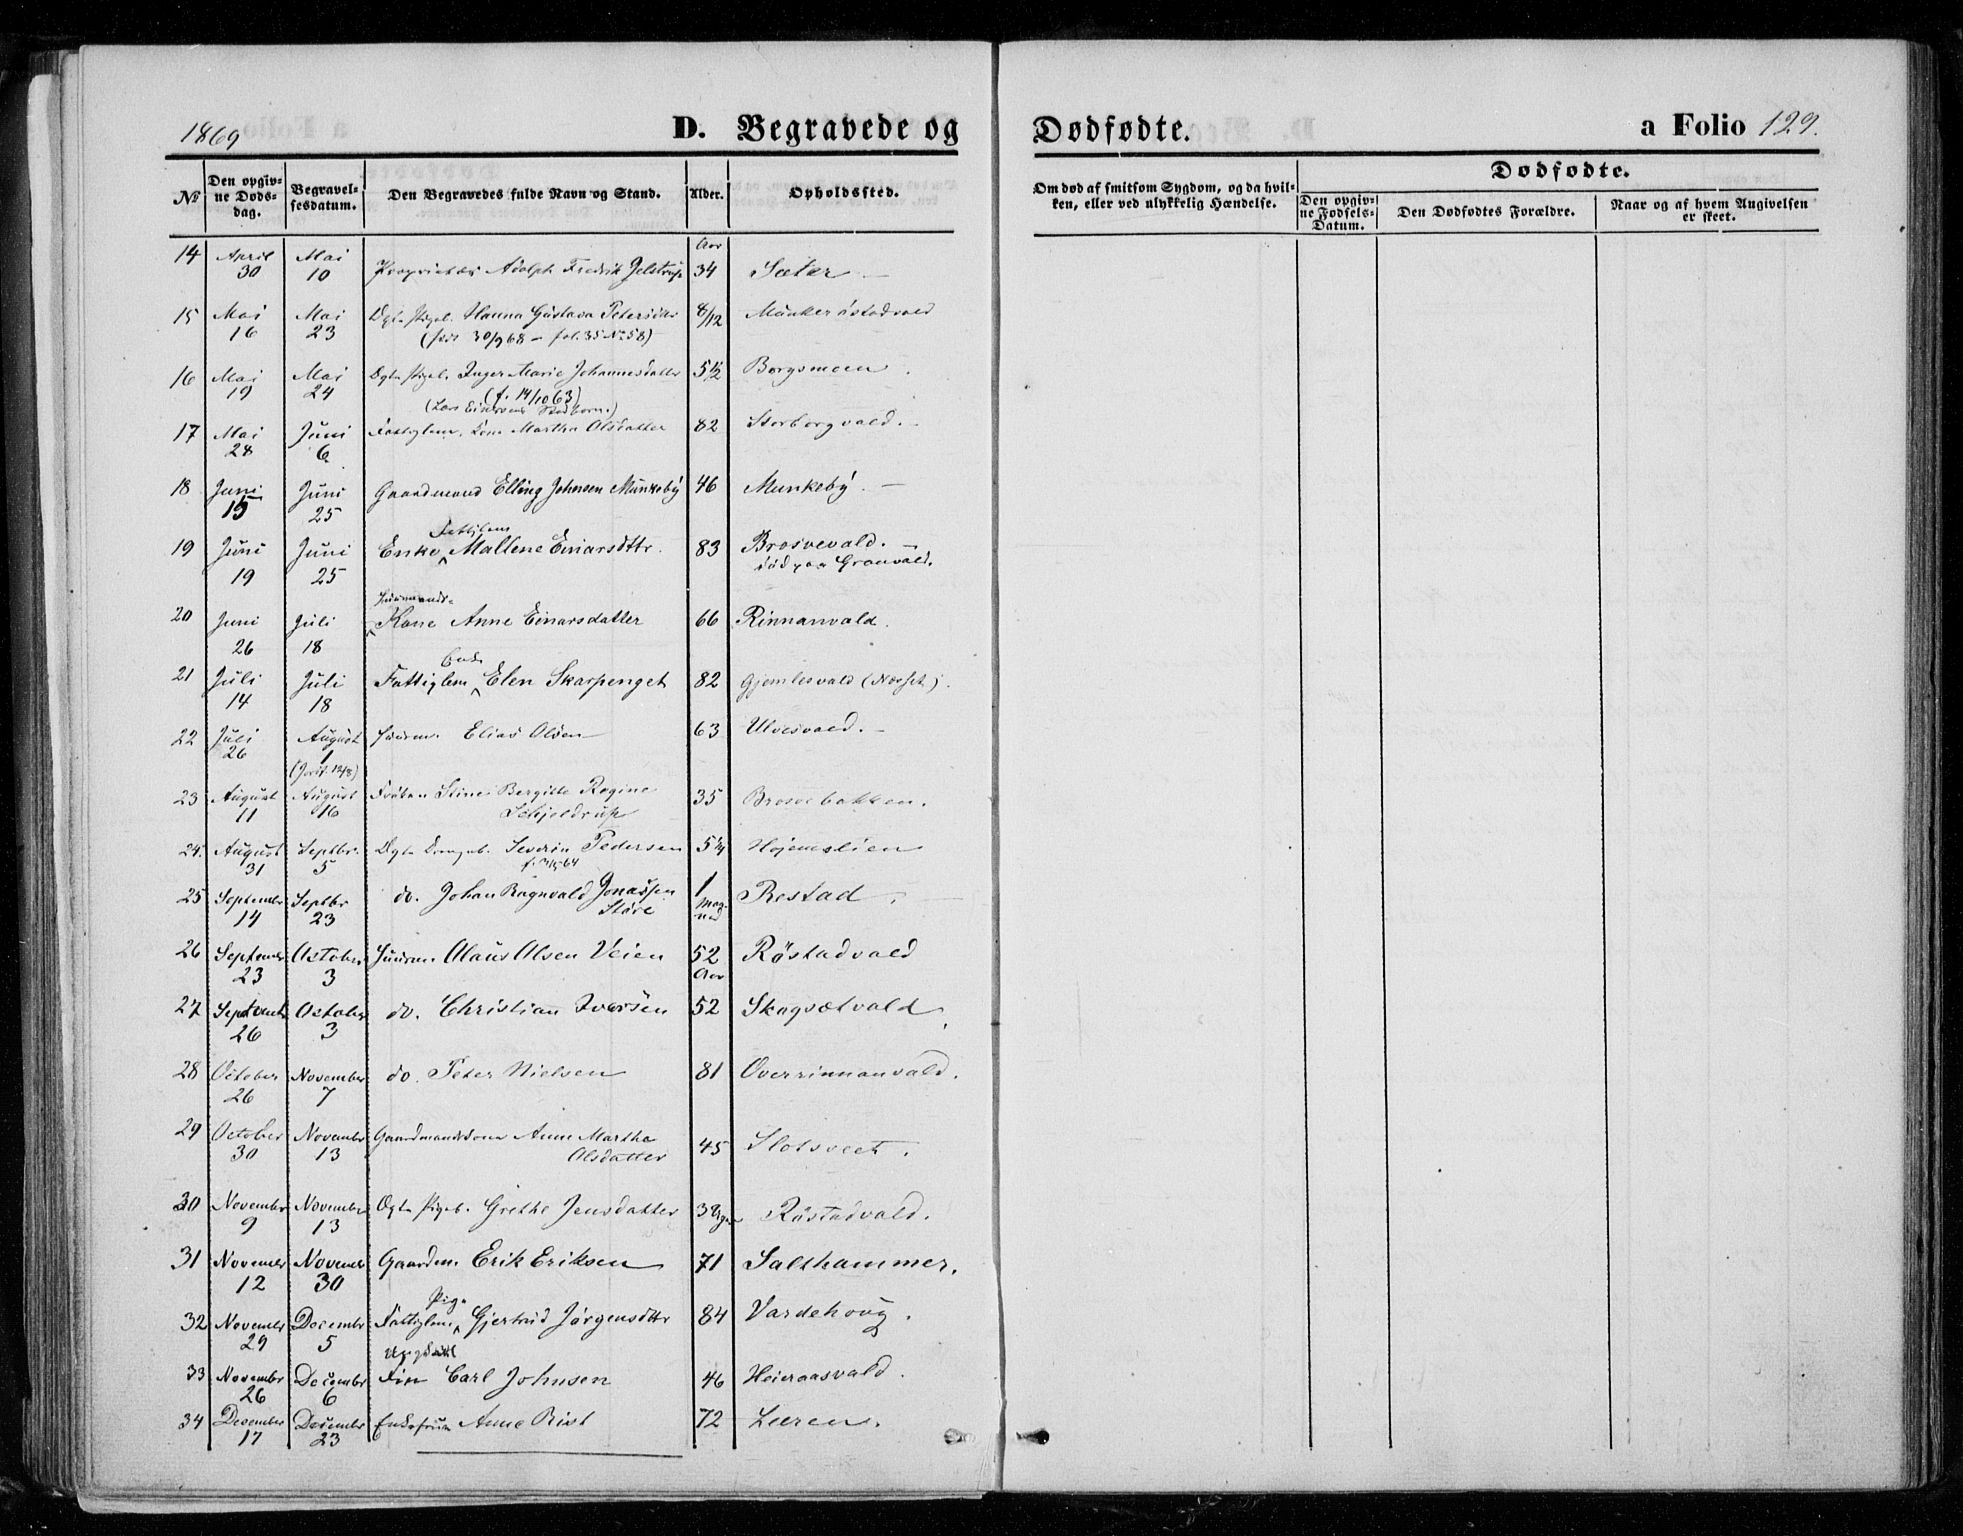 1869
D. Begravede og Dødfødte.
a Folio 129.
No
Den opgivne Dødsdag.
Begravelsesdatum.
Den Begravedes fulde Navn og Stand.
Alder.
Opholdssted.
Om død af smitsom Sygdom, og da hvilken, eller ved ulykkelig Hændelse.
Dødfødte.
Den opgivne Fødsels-Datum.
Den Dødfødtes Forældre.
Naar og af hvem Angivelsen er skeet.
14 April 30 Mai 10 Proprietær Adolph Fredrik Jelstrup Aar 34 Sæter
15 Mai 16 Mai 23 Ægte Pigeb. Hanna Gustava Petersdtr 8/12 Munkerøstadvald
(født 30/9 68 – fol. 35 No 58)
16 Mai 19 Mai 24 Ægte Pigeb. Inger Marie Johannesdatter 5½ Borgsmoen
(f. 14/10 63)
17 Mai 28 Juni 6 Fattiglem, Kone Martha Olsdatter 82 Storborgvald.
18 Juni 15 Juni 25 Gaardmand Elling Johnsen Munkeby 46 Munkeby. –
19 Juni 19 Juni 25 Enke Fattiglem Mallene Einarsdttr. 83 Brosvevald. –
død paa Granvald.
20 Juni 26 Juli 18 Huusmands- Kone Anne Einarsdatter 66 Rinnanvald.
21 Juli 14 Juli 18 Fattiglem Enke Elen Skarpenget 82 Gjemlesvald (Næsset).
22 Juli 26 August 1 Huusm. Elias Olsen 63 Ulvesvald. –
(Jordf. 12/8)
23 August 11 August 16 Frøken Stine Bergitte Regine Schjeldrup 35 Brosvebakken.
24. August 31 Septbr. 5 Ægte Drengeb. Severin Pedersen 5¼ Højemslien
25 September 14 Septbr 23 do. Johan Ragnvald Jonassen Støre 1 Maaned Restad.
26 September 23 October 3 Huusm. Olaus Olsen Veien 52 Aar Røstadvald
27 September 26 October 3 do. Christian Iversen 52 Skogsætvald
28 October 26 November 7 do. Peter Nielsen 81 Overrinnanvald.
29 October 30 November 13 Gaardmandskone Anne Martha Olsdatter 45 Slotsveet.
30 November 9 November 13 Ægte Pigeb. Grethe Jensdatter 3 Uger Røstadvald.
31 November 12 November 30 Gaardm. Erik Eriksen 71 Salthammer.
32 November 29 December 5 Fattiglem Pige Gjertrud Jørgensdttr 84 Vardehoug.
33 November 26 December 6 Fin Carl Johnsen 46 Heieraasvald.
34 December 17 December 23 Enkefrue Anne Rist 72 Leeren.